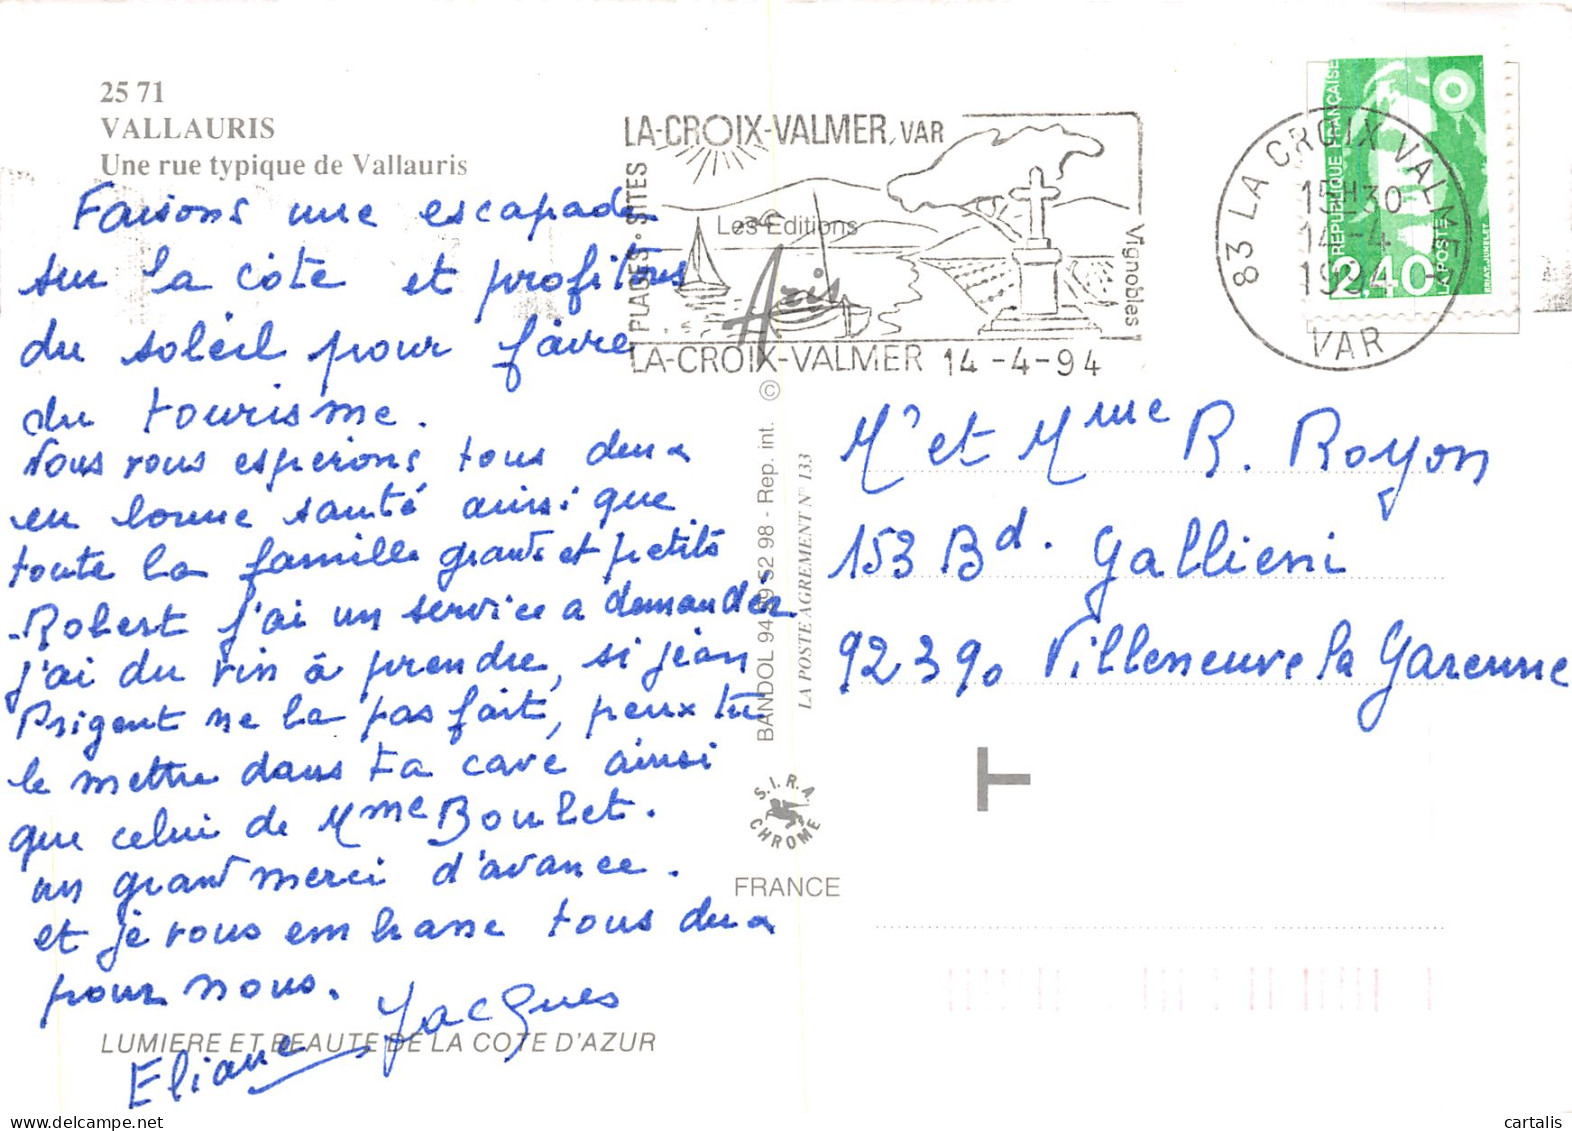 25 71
VALLAURIS
Une rue typique de Vallauris
Faisons une escapade
sur la côte et profitons
du soleil pour faire
du tourisme.
Nous vous espérons tous deux
en bonne santé ainsi que
toute la famille grands et petits
Robert j'ai un service a demander
j'ai du vin à prendre, si jean
Prigent ne la pas fait, peux tu
le mettre dans ta cave ainsi
que celui de Mme Boulet.
un grand merci d'avance.
et je vous embrasse tous deux
pour nous.
Eliane Jacques
LUMIERE ET BEAUTE DE LA COTE D'AZUR
LA-CROIX-VALMER, VAR
PLAGES - SITES
Vignobles
LA-CROIX-VALMER 14-4-94
Les Editions
Aris
©
BANDOL 94 29 52 98 - Rep. int.
LA POSTE AGREMENT N° 133
S.I.R.A.
CHROME
FRANCE
83 LA CROIX VALMER
15H30
14-4
1994
VAR
REPUBLIQUE FRANÇAISE
2,40
LA POSTE
BRIAT-JUMELET
Mr et Mme R. Royon
153 Bd. Gallieni
92390 Villeneuve la Garenne
T
cartalis.delcampe.net
cartalis